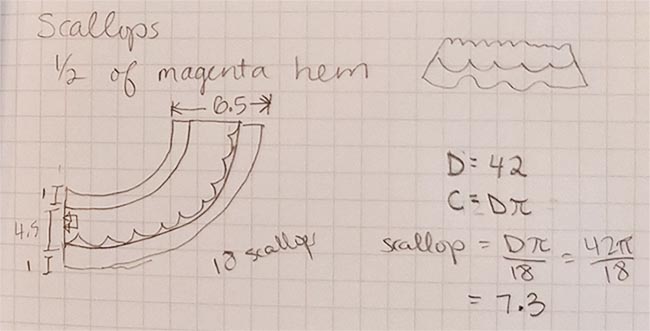 Scallops
1/2 of magenta hem
6.5
1
4.5
1
18 scallops
D = 42
C = Dπ
scallop = Dπ/18 = 42π/18
= 7.3